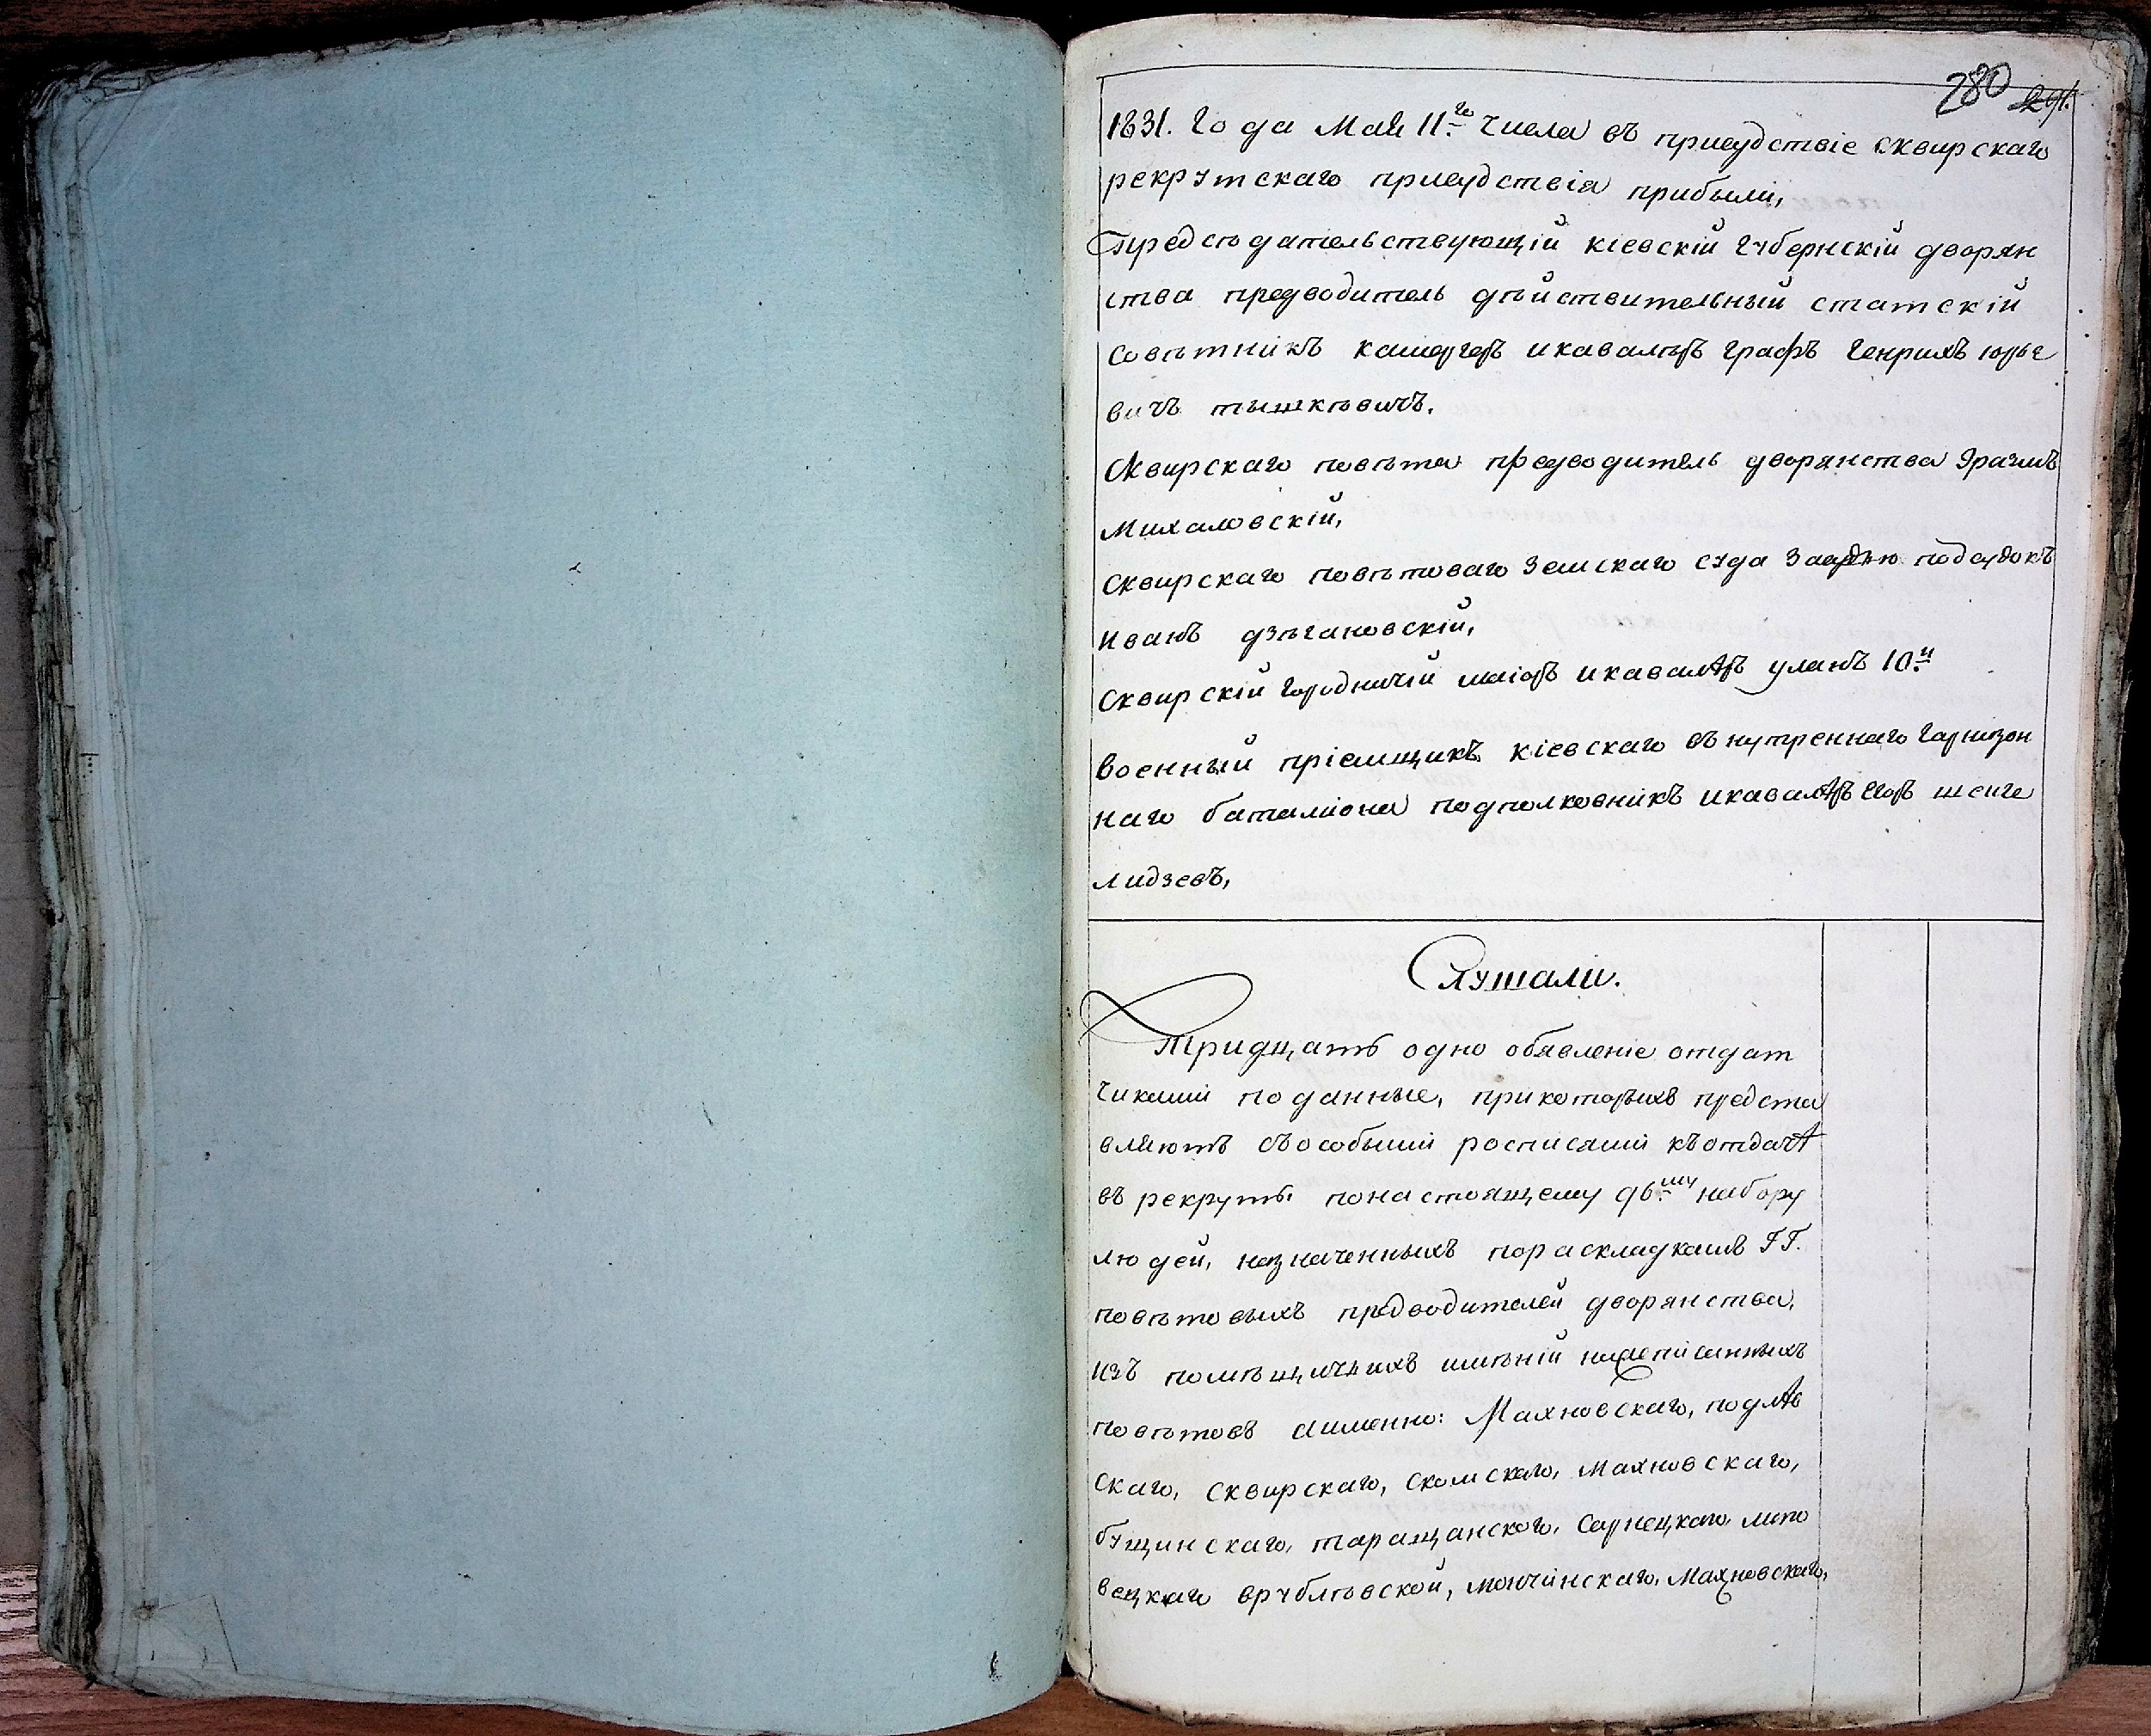 280 291.
1831. Года Мая 11.го Числа въ присудствіе сквирскаго
рекрутскаго присудствія прибыли,
Предсѣдательствующій кіевскій Губернскій дворян
ства предводитель дѣйствительный статскій
совѣтникъ камергеръ икавалѣръ Графъ Генрихъ юрье
вичъ тышкѣвичъ.
Сквирскаго повѣта предводитель дворянства Эразмъ
Михаловскій,
сквирскаго повѣтоваго Земскаго суда подсудокъ
иванъ дзѣгановскій,
Сквирскій Городничій маіоръ икавалѣръ уланъ 10.й
военный пріемщикъ кіевскаго вънутреннаго Гарнизон
наго баталіона подполковникъ икавалѣръ Егоръ шенге
лидзевъ,
Слушали.
Тридцать одно обявленіе отдат
чиками поданные, прикоторыхъ предста
вляютъ съособыми росписями къотдачѣ
въ рекруты понастоящему 96.му набору
людей, назначенныхъ пораскладкамъ ГГ.
повѣтовыхъ предводителей дворянства,
изъ помѣщичихъ имѣній
повѣтовъ аименно: Махновскаго, подлѣв
скаго, Сквирскаго, махновскаго,
таращанского,
вецкаго врублѣвской, мончинскаго, Махновскаго,